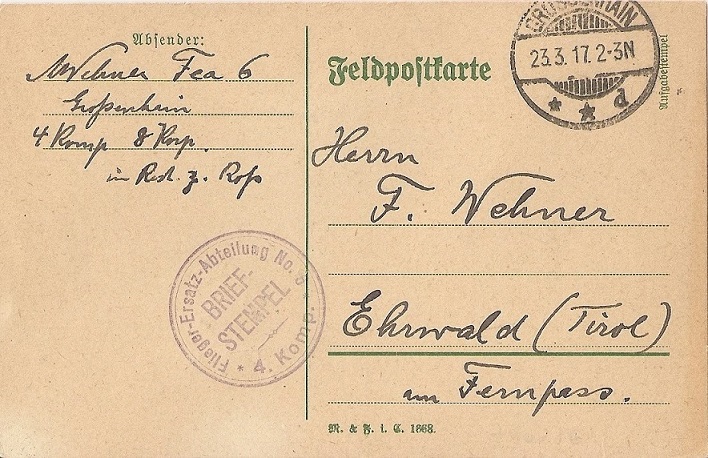 Absender:
Wehner Fea 6
Großenhain
4 Komp 8 Korp.
in Rest. z. Roß
Feldpostkarte
GROSSENHAIN
23.3.17.2-3N
* * d
Aufgabestempel
Herrn
F. Wehner
Ehrwald (Tirol)
am Fernpass.
Flieger-Ersatz-Abteilung No.
BRIEF-
STEMPEL
* 4. Komp.
M. & F. i. C. 1668.